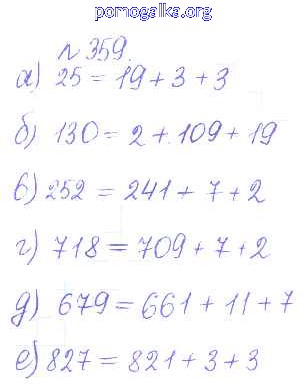 pomogalka.org
№ 359.
а) 25 = 19 + 3 + 3
б) 130 = 2 + 109 + 19
в) 252 = 241 + 7 + 2
г) 718 = 709 + 7 + 2
д) 679 = 661 + 11 + 7
е) 827 = 821 + 3 + 3